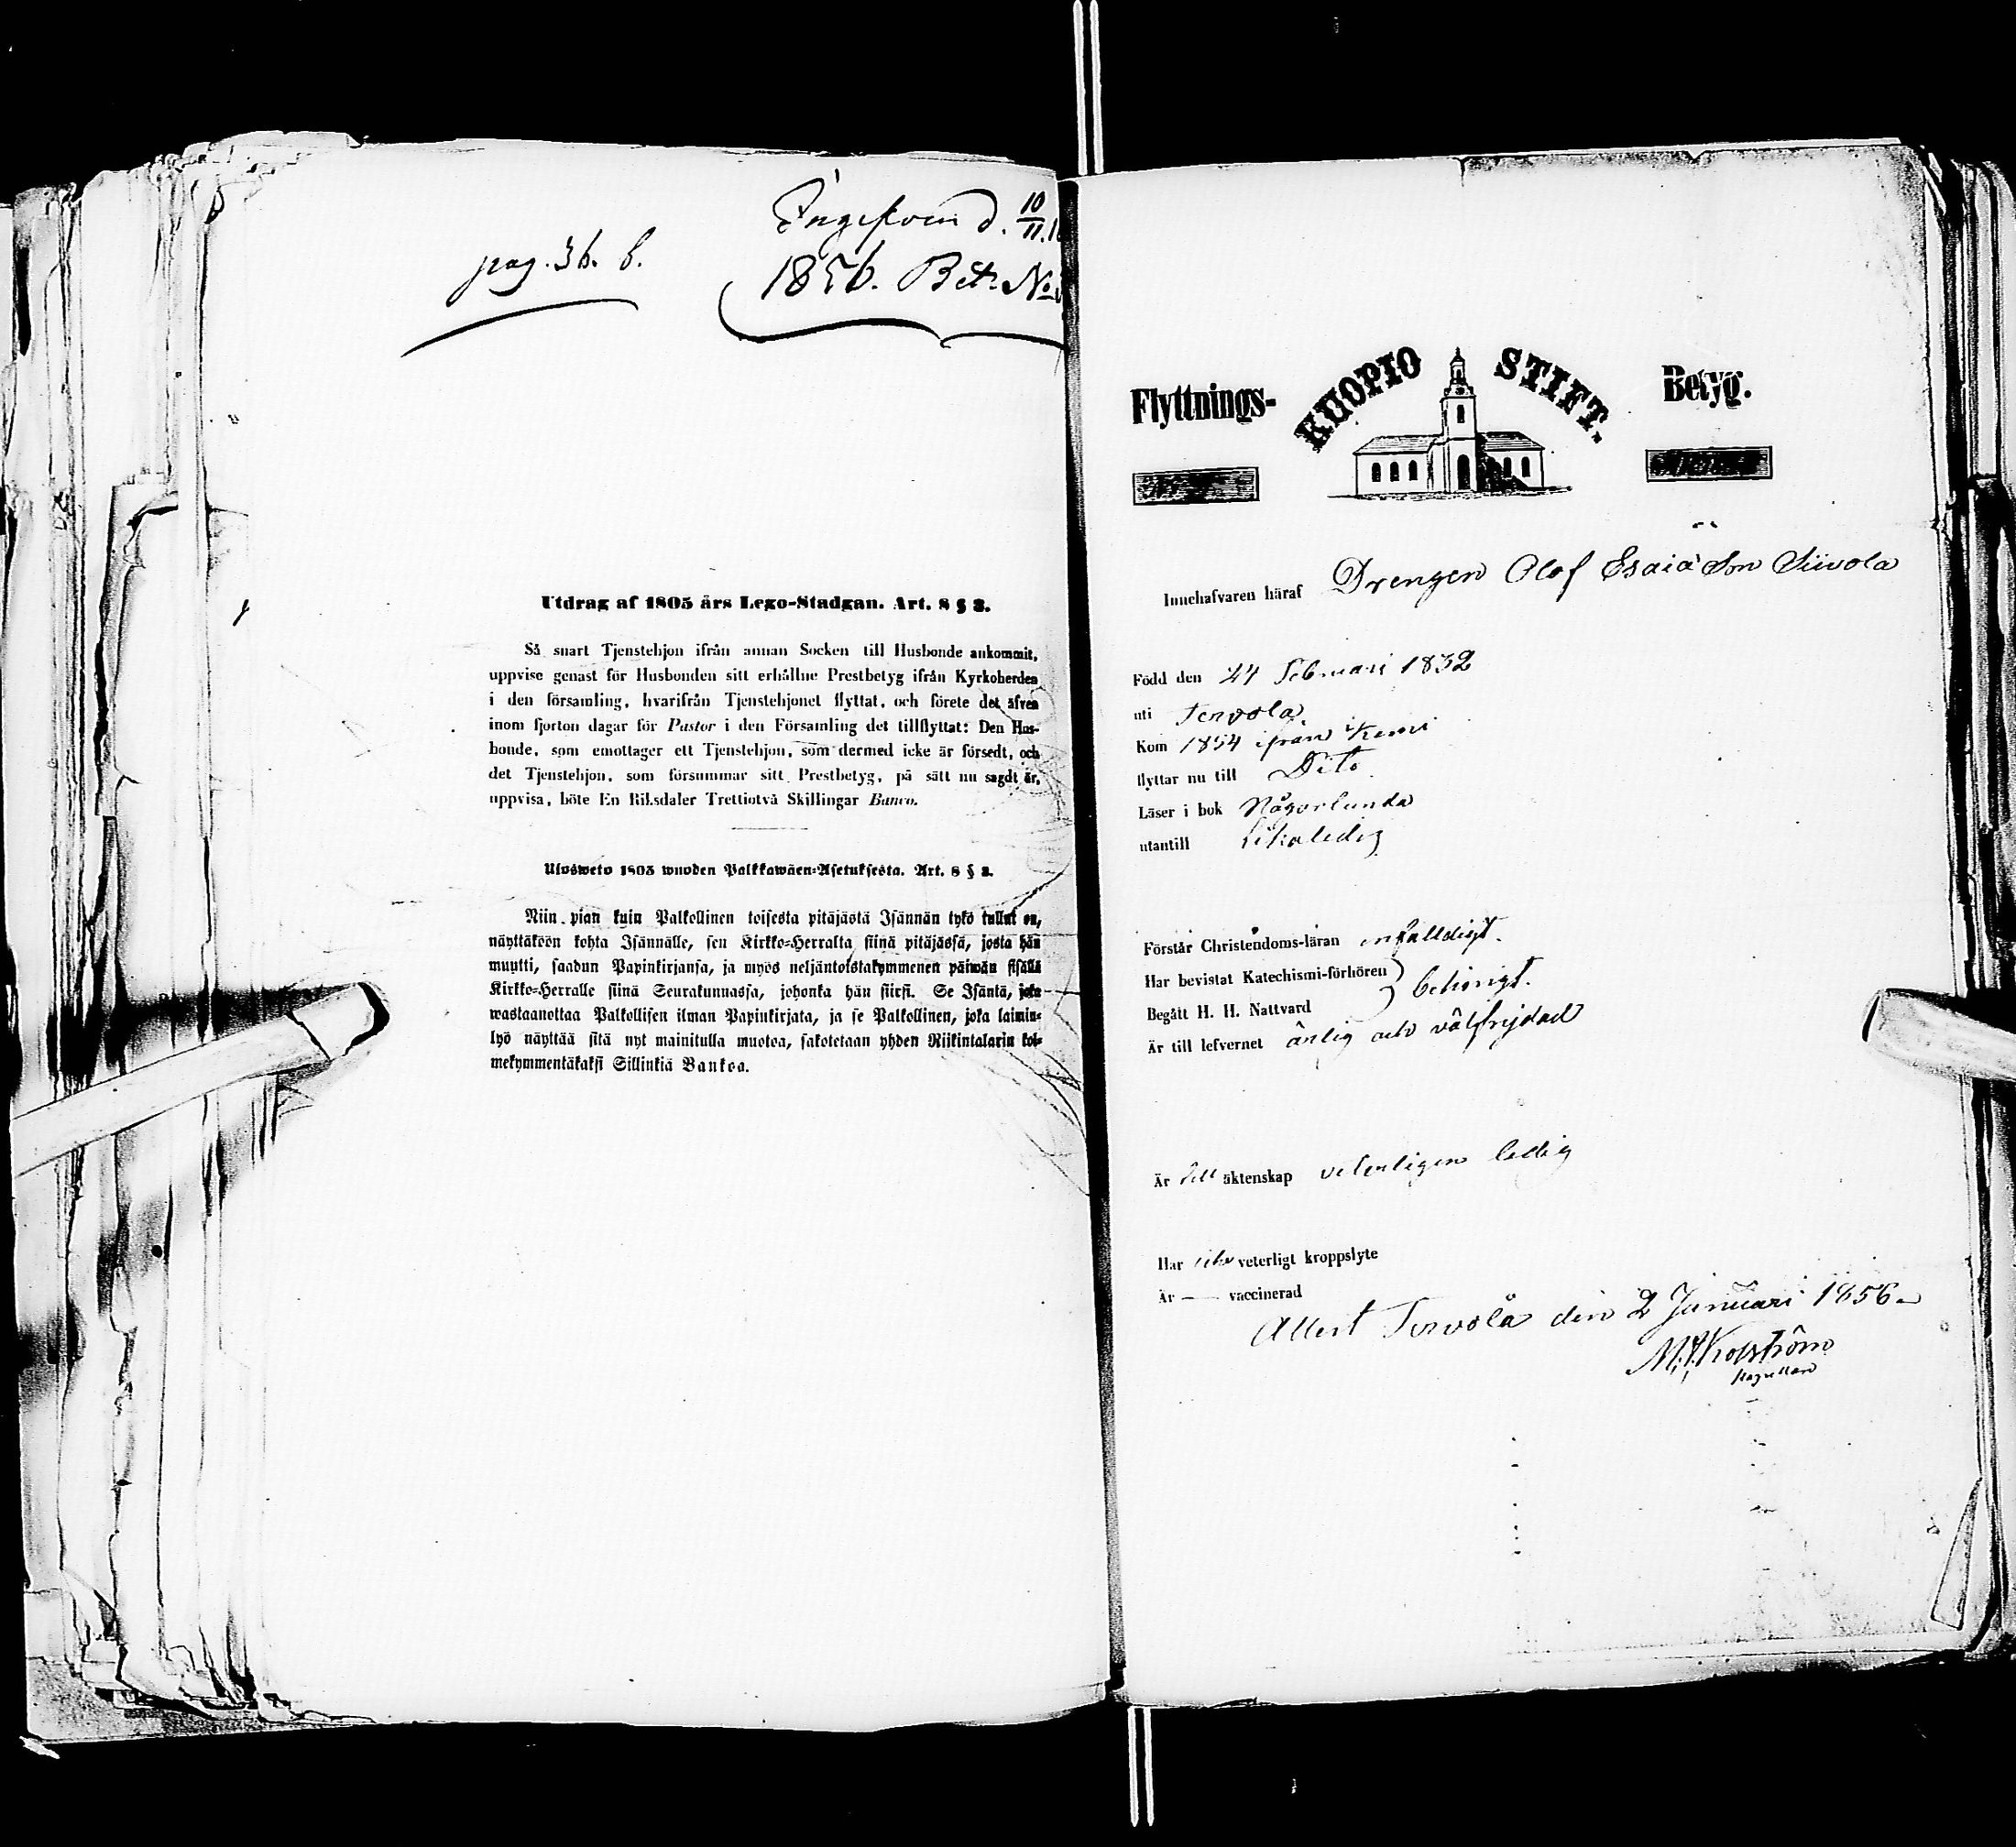 pag. 36. b.
Ingifven d. 10/11.
1856. Bet. No
Utdrag af 1805 års Lego-Stadgan. Art. 8 § 3.
Så snart Tjenstehjon ifrån annan Socken till Husbonde ankommit,
uppvise genast för Husbonden sitt erhållne Prestbetyg ifrån Kyrkoherden
i den församling, hvarifrån Tjenstehjonet flyttat, och förete det äfven
inom fjorton dagar för Pastor i den Församling det tillflyttat: Den Hus-
bonde, som emottager ett Tjenstehjon, som dermed icke är försedt, och
det Tjenstehjon, som försummar sitt Prestbetyg, på sätt nu sagdt är,
uppvisa, böte En Riksdaler Trettiotvå Skillingar Banco.
Ulosweto 1805 wuoden Palkkawäen-Asetuksesta. Art. 8 § 3.
Niin pian kuin Palkollinen toisesta pitäjästä Isännän tykö tullut on,
näyttäköön kohta Isännälle, sen Kirkko-Herralta siinä pitäjässä, josta hän
muutti, saadun Papinkirjansa, ja myös neljäntoistakymmenen päiwän sisällä
Kirkko-Herralle siinä Seurakunnassa, johonka hän siirsi. Se Isäntä, joka
wastaanottaa Palkollisen ilman Papinkirjata, ja se Palkollinen, joka laimin-
lyö näyttää sitä nyt mainitulla muotoa, sakotetaan yhden Riikintalarin kol-
mekymmentäkaksi Sillinkiä Bankoa.
Flyttnings- KUOPIO STIFT. Betyg.
Innehafvaren häraf Drengen Olof Esaiä Son Siivola
Född den 24 Februari 1832
uti Tervola
Kom 1854 ifrån Kemi
flyttar nu till Dito
Läser i bok Någorlunda
utantill likaledes
Förstår Christendoms-läran enfalldigt.
Har bevistat Katechismi-förhören
Begått H. H. Nattvard behörigt.
Är till lefvernet ärlig och välfrejdad
Är till äktenskap veterligen ledig
Har icke veterligt kroppslyte
Är — vaccinerad
Attest Tervola den 2 Januari 1856
Kapellan